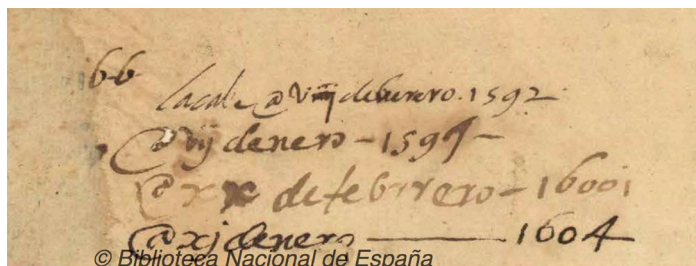 66
Lacal @ viij debrero. 1592
@ vij de nero - 1594 -
@ xx de febrrero - 16001
@ xj de nero — 1604
© Biblioteca Nacional de España